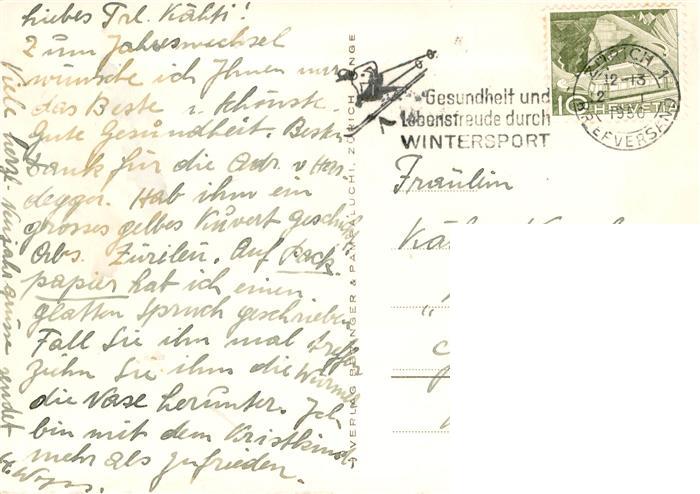 Liebes Frl. Käthi!
Zum Jahreswechsel
wünsche ich Ihnen nur
das Beste u. Schönste.
Gute Gesundheit. Besten
Dank für die Adr. v
degger. Hab ihm ein
grosses gelbes Kuvert geschickt
Abs. Zürileu. Auf Pack-
papier hat ich einen
glatten Spruch geschrieben
Fall Sie ihn mal treffen
ziehn Sie ihm die Würmer
die Nase herunter. Ich
bin mit dem Kristkind
mehr als zufrieden.
Viele herzl. Neujahrsgrüsse sendet
VERLAG BERINGER & PAMPALUCHI, ZÜRICH
Gesundheit und
Lebensfreude durch
WINTERSPORT
ZÜRICH 1
12-13
1950
BRIEFVERSAND
10 HELVETIA
Fräulein